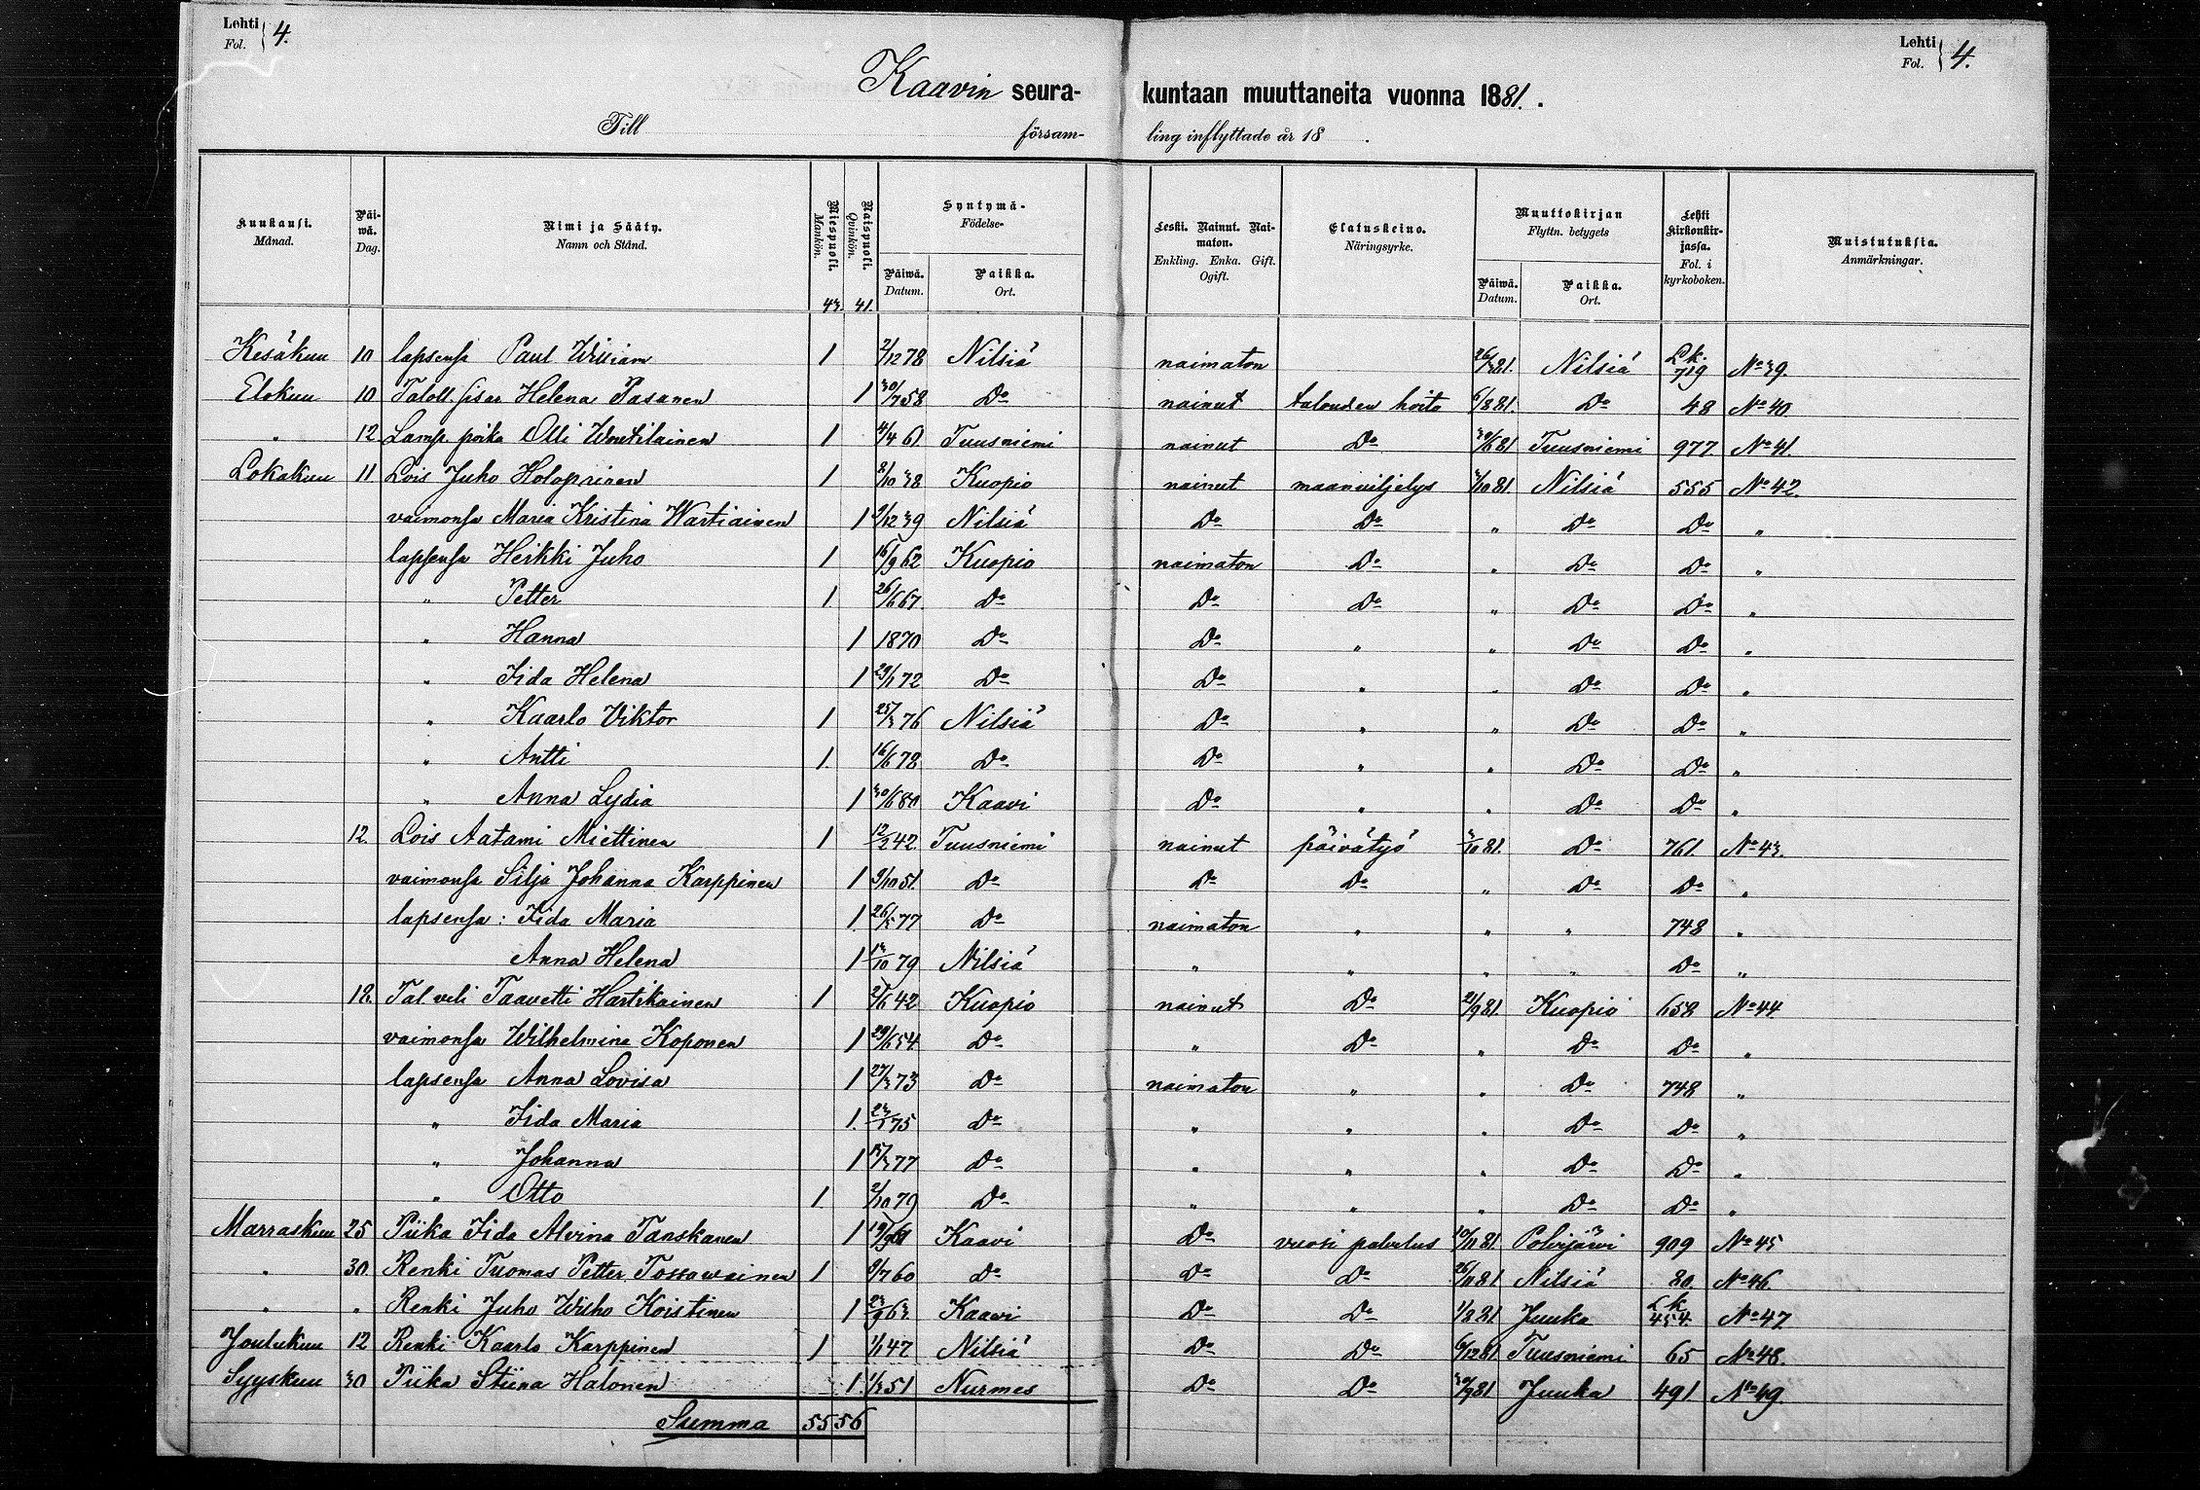 Lehti Fol. } 4.
Lehti Fol. } 4.
Kaavin seura- kuntaan muuttaneita vuonna 1881.
Till församling inflyttade år 18 .
Kuukausi. Månad. | Päiwä. Dag. | Nimi ja Sääty. Namn och Stånd. | Miespuoli. Mankön. | Naispuoli. Qvinkön. | Syntymä- Födelse- | Leski. Nainut. Naimaton. Enkling. Enka. Gift. Ogift. | Elatuskeino. Näringsyrke. | Muuttokirjan Flyttn. betygets | Lehti kirkonkirjassa. Fol. i kyrkoboken. | Muistutuksia. Anmärkningar.
Päiwä. Datum. | Paikka. Ort. | Päiwä. Datum. | Paikka. Ort.
43. 41.
Kesäkuu 10 lapsensa Paul William 1 2/12 78 Nilsiä naimaton 26/3 81. Nilsiä Lk. 719 No 39.
Elokuu 10 Taloll. sisar Helena Pasanen 1 30/7 58 Do nainut talouden hoito 6/8 81. Do 48 No 40
" 12 Lamp. poika Olli Woutilainen 1 4/4 61 Tuusniemi nainut Do 30/6 81 Tuusniemi 977 No 41.
Lokakuu 11 Lois Juho Holopainen 1 8/10 38 Kuopio nainut maanviljelys 3/10 81. Nilsiä 555 No 42.
vaimonsa Maria Kristina Wartiainen 1 9/12 39 Nilsiä Do Do " Do Do "
lapsensa Heikki Juho 1 16/9 62 Kuopio naimaton Do " Do Do "
" Petter 1. 26/6 67. Do Do Do " Do Do "
" Hanna 1 1870 Do Do " " Do Do "
" Iida Helena 1 29/1 72 Do Do " " Do Do "
" Kaarlo Viktor 1 25/3 76 Nilsiä Do " " Do Do "
" Antti 1. 16/6 78 Do Do " " Do Do "
" Anna Lydia 1 30/6 80 Kaavi Do " " Do Do "
12. Lois Aatami Miettinen 1 12/2 42. Tuusniemi nainut päivätyö 3/10 81. Do 761. No 43.
vaimonsa Silja Johanna Karppinen 1 9/10 51. Do Do Do " Do Do "
lapsensa: Iida Maria 1. 26/5 77 Do naimaton " " " 748 "
Anna Helena 1 13/10 79 Nilsiä " " " " Do "
18. Tal veli Taavetti Hartikainen 1 2/6 42 Kuopio nainut Do 21/9 81. Kuopio 658 No 44
vaimonsa Wilhelmina Koponen 1 29/6 54 Do " Do " Do Do "
lapsensa Anna Lovisa 1 27/3 73 Do naimaton " " Do 748 "
" Iida Maria 1. 23/1 75 Do " " " Do Do "
" Johanna 1 15/3 77 Do " " " Do Do "
" Otto 1. 2/10 79 Do " " " Do Do "
Marraskuu 25 Piika Iida Alvina Tanskanen 1 19/9 61 Kaavi Do vuosi palvelus 10/11 81. Polvijärvi 909 No 45
" 30. Renki Tuomas Petter Tossawainen 1 9/7 60 Do Do Do 26/11 81 Nilsiä 80 No 46.
" " Renki Juho Wilho Koistinen 1 23/9 63 Kaavi Do Do 1/8 81 Juuka Lk 454 No 47
Joulukuu 12 Renki Kaarlo Karppinen 1 1/1 47 Nilsiä Do Do 6/12 81 Tuusniemi 65 No 48.
Syyskuu 30 Piika Stiina Halonen 1. 1/3 51 Nurmes Do Do 30/9 81 Juuka 491 No 49.
Summa 55 56